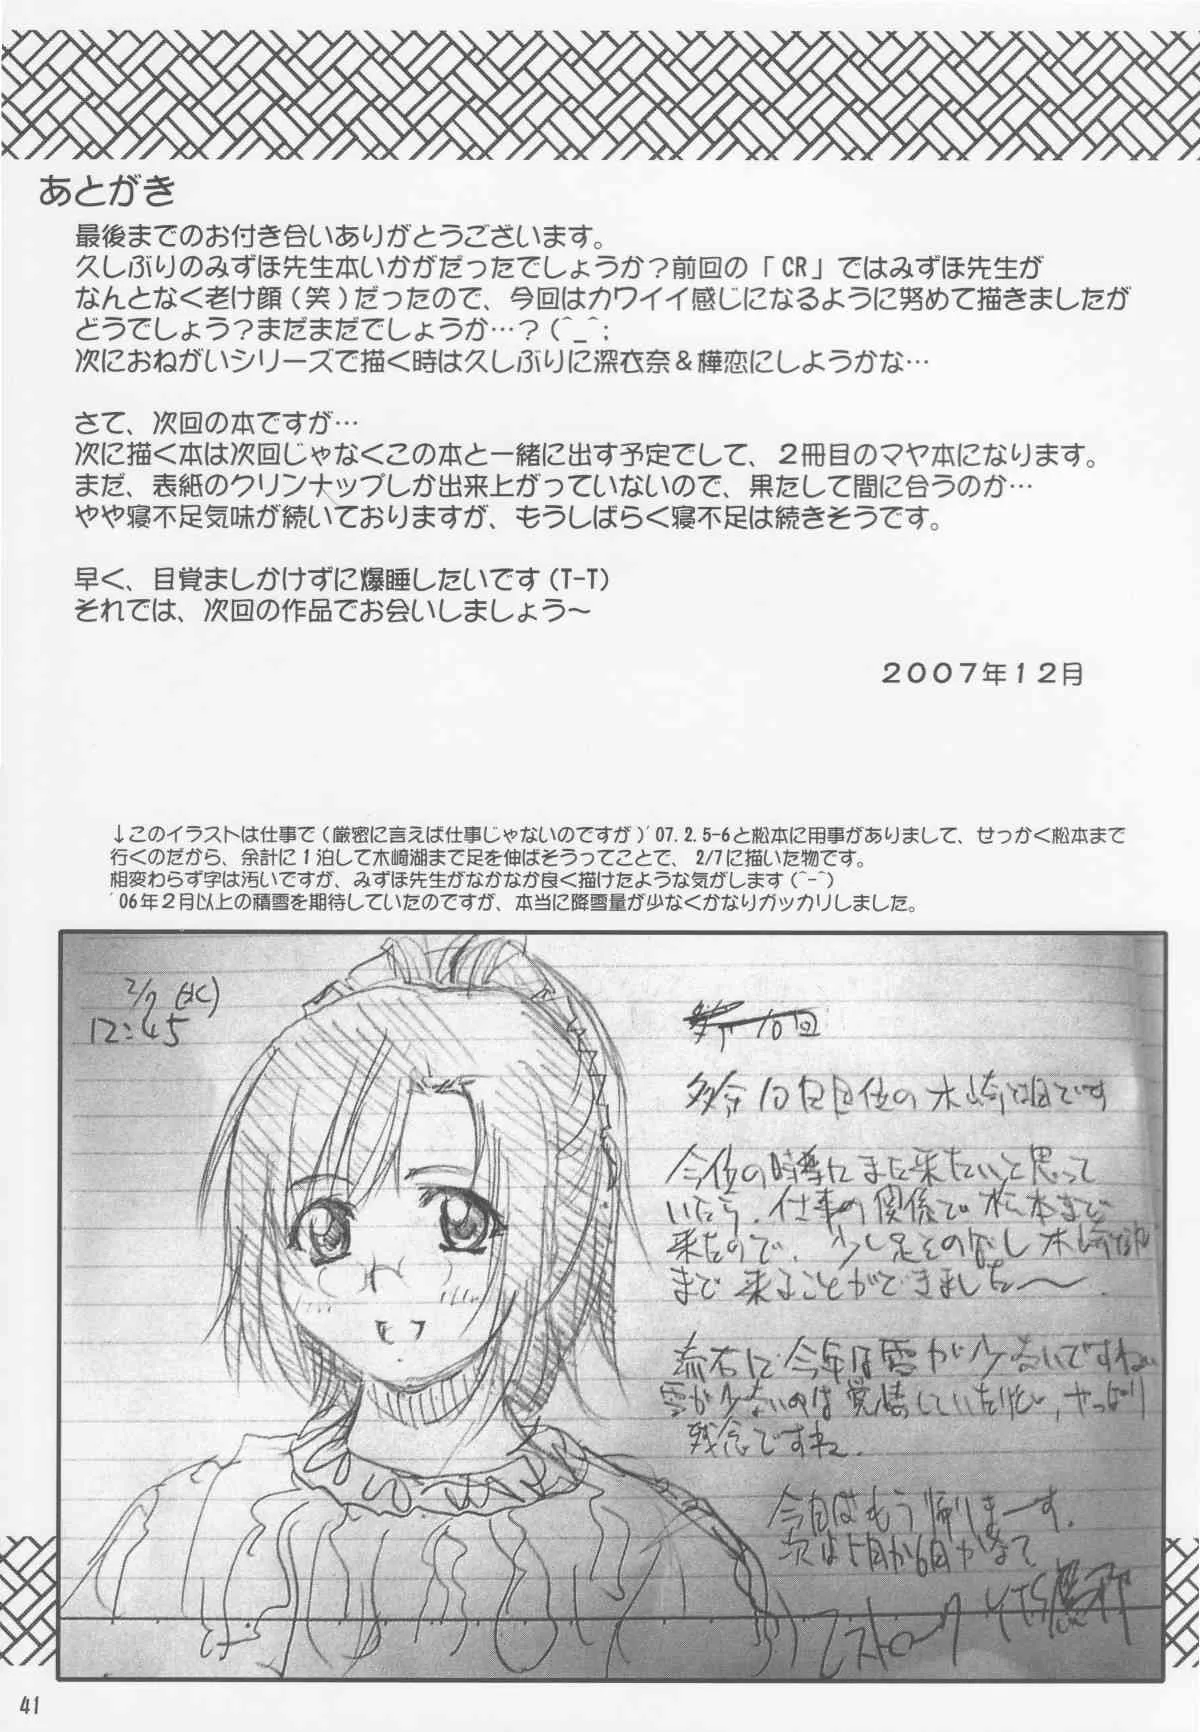 あとがき
最後までのお付き合いありがとうございます。
久しぶりのみずほ先生本いかがだったでしょうか？前回の「CR」ではみずほ先生が
なんとなく老け顔(笑)だったので、今回はカワイイ感じになるように努めて描きましたが
どうでしょう？まだまだでしょうか…？(^_^;
次におねがいシリーズで描く時は久しぶりに深衣奈＆樺恋にしようかな…
さて、次回の本ですが…
次に描く本は次回じゃなくこの本と一緒に出す予定でして、２冊目のマヤ本になります。
まだ、表紙のクリンナップしか出来上がっていないので、果たして間に合うのか…
やや寝不足気味が続いておりますが、もうしばらく寝不足は続きそうです。
早く、目覚ましかけずに爆睡したいです(T-T)
それでは、次回の作品でお会いしましょう〜
２００７年１２月
↓このイラストは仕事で(厳密に言えば仕事じゃないのですが)'07.2.5-6と松本に用事がありまして、せっかく松本まで
行くのだから、余計に１泊して木崎湖まで足を伸ばそうってことで、2/7に描いた物です。
相変わらず字は汚いですが、みずほ先生がなかなか良く描けたような気がします(^-^)
'06年２月以上の積雪を期待していたのですが、本当に降雪量が少なくかなりガッカリしました。
2/7 (水)
12:45
10回
多分10回目位の木崎湖です
今位の時季にまた来たいと思って
いたら、仕事の関係で松本まで
来たので、少し足をのばし木崎湖
まで来ることができました〜。
流石に今年は雪が少ないですねぇ
雪が少ないのは覚悟していたけど、やっぱり
残念ですね。
今日はもう帰りまーす。
次は5月か6月かなって
41